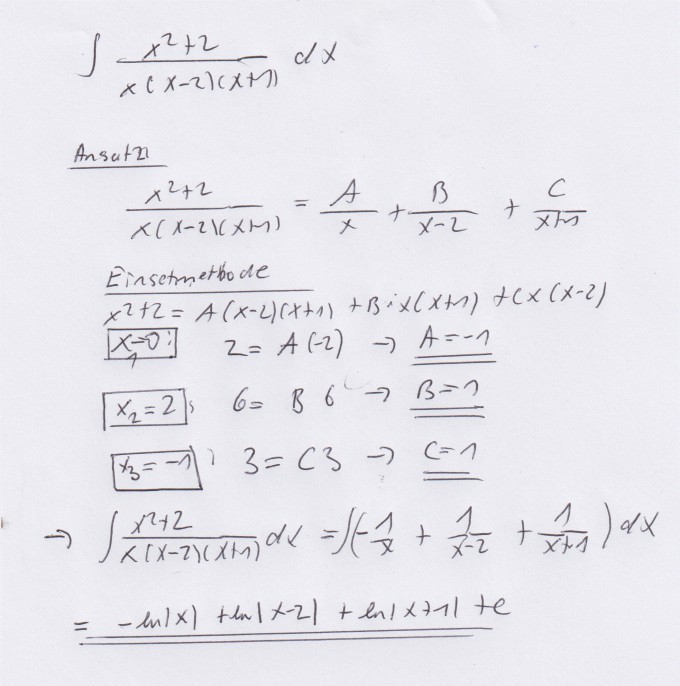 ∫ x²+2 / x(x-2)(x+1) dx
Ansatz
x²+2 / x(x-2)(x+1) = A/x + B/x-2 + C/x+1
Einsetzmethode
x²+2 = A(x-2)(x+1) + B·x(x+1) + Cx(x-2)
x₁=0: 2 = A(-2) → A=-1
x₂=2: 6= B 6 → B=1
x₃=-1: 3 = C3 → C=1
→ ∫ x²+2 / x(x-2)(x+1) dx = ∫(-1/x + 1/x-2 + 1/x+1) dx
= -ln|x| + ln|x-2| + ln|x+1| + c